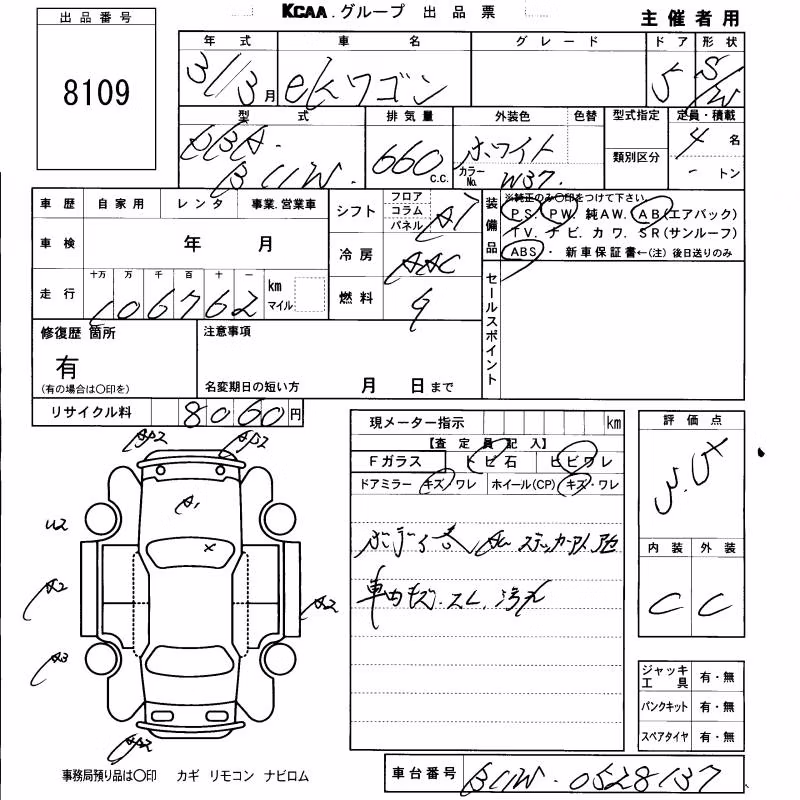 KCAA. グループ 出品票
主催者用
出品番号
8109
年式 車名 グレード ドア 形状
31/3月 eKワゴン 5 S/W
型式 排気量 外装色 色替 型式指定 定員・積載
B11W. 660 c.c. ホワイト 4名
類別区分
カラーNo. W37. - トン
車歴 自家用 レンタ 事業.営業車
シフト フロア コラム パネル AT
装備品 ※純正のみ〇印をつけて下さい
PS. PW. 純AW. AB(エアバック)
TV. ナビ. カワ. SR(サンルーフ)
ABS・新車保証書←(注)後日送りのみ
車検 年 月
冷房 AAC
走行 十万 万 千 百 十 一
106762 km マイル
燃料 G
セールスポイント
修復歴 箇所
有
(有の場合は〇印を)
注意事項
名変期日の短い方 月 日まで
リサイクル料 8060円
現メーター指示 km
【査定員記入】
Fガラス トビ石 ヒビワレ
ドアミラー キズ/ワレ ホイール(CP) キズ・ワレ
評価点
内装 外装
C C
A1
X
U2
A2
A2
A3
ジャッキ工具 有・無
パンクキット 有・無
スペアタイヤ 有・無
事務局預り品は〇印 カギ リモコン ナビロム
車台番号 B11W-0528137